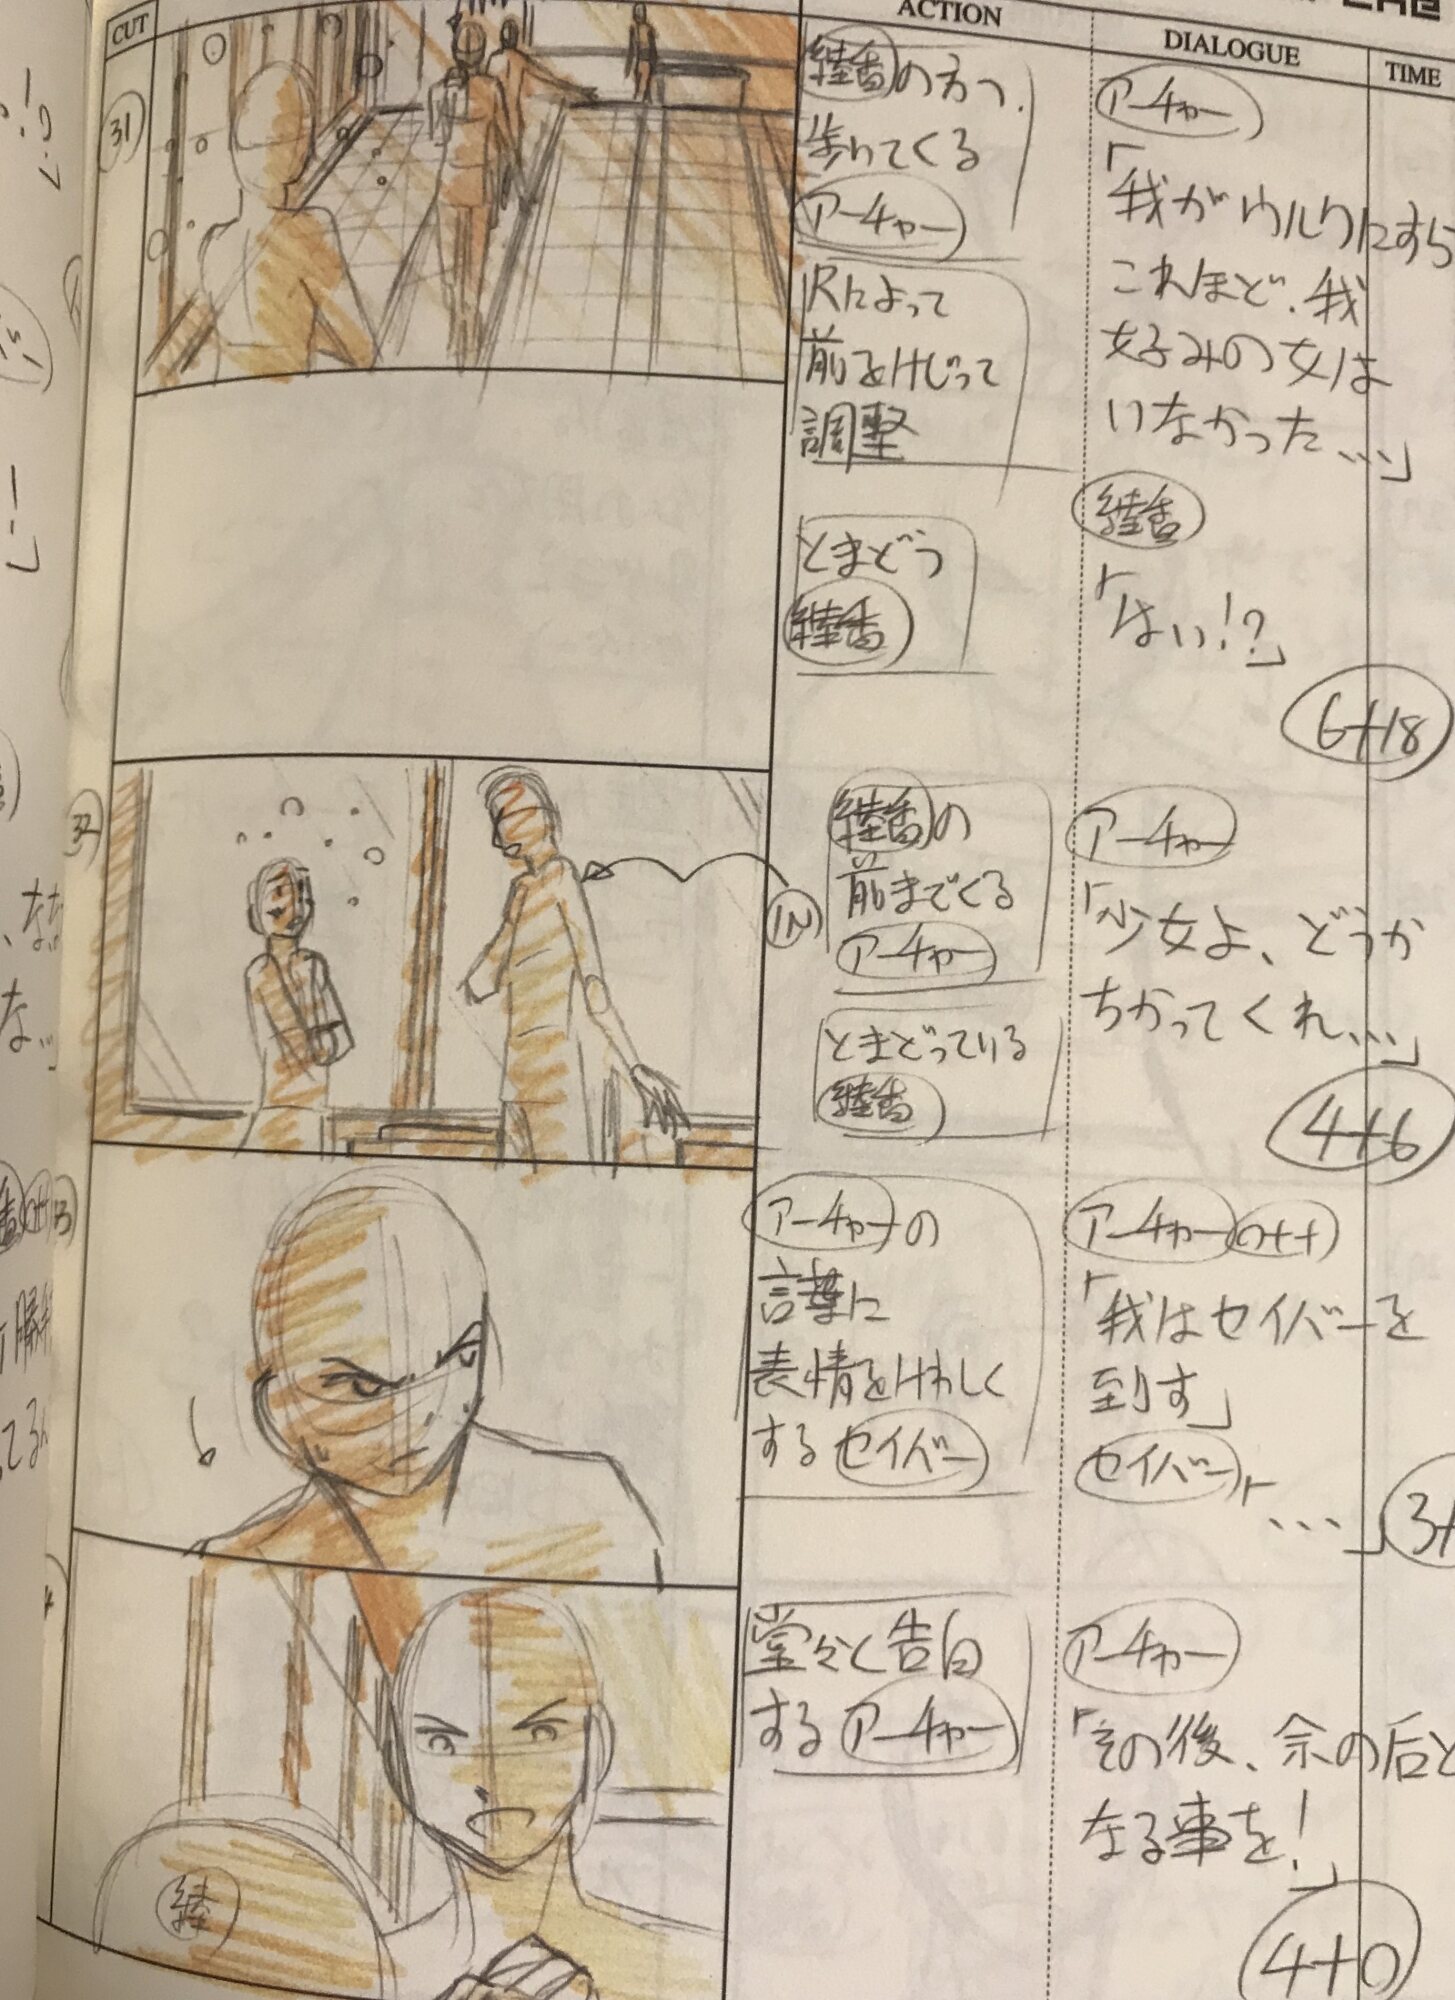 CUT
ACTION
DIALOGUE
TIME
31
綾香の方へ
歩いてくる
アーチャー
尺によって
前をけずって
調整
とまどう
綾香
アーチャー
「我がウルクにすら
これほど、我
好みの女は
いなかった…」
綾香
「はい!?」
6+18
32
IN
綾香の
前までくる
アーチャー
とまどっている
綾香
アーチャー
「少女よ、どうか
ちかってくれ…」
4+6
アーチャーの
言葉に
表情をけわしく
するセイバー
アーチャー OFF
「我はセイバーを
倒す」
セイバー「…」
3+
堂々と告白
するアーチャー
アーチャー
「その後、余の后と
なる事を!」
4+0
綾